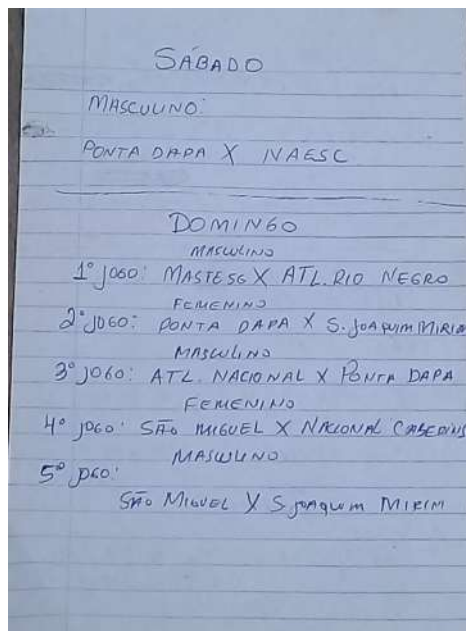 SÁBADO
MASCULINO:
PONTA DAPA X NAESC
DOMINGO
MASCULINO
1º JOGO: MASTESG X ATL. RIO NEGRO
FEMENINO
2º JOGO: PONTA DAPA X S. JOAQUIM MIRIM
MASCULINO
3º JOGO: ATL. NACIONAL X PONTA DAPA
FEMENINO
4º JOGO: SÃO MIGUEL X NACIONAL
MASCULINO
5º JOGO:
SÃO MIGUEL X S. JOAQUIM MIRIM